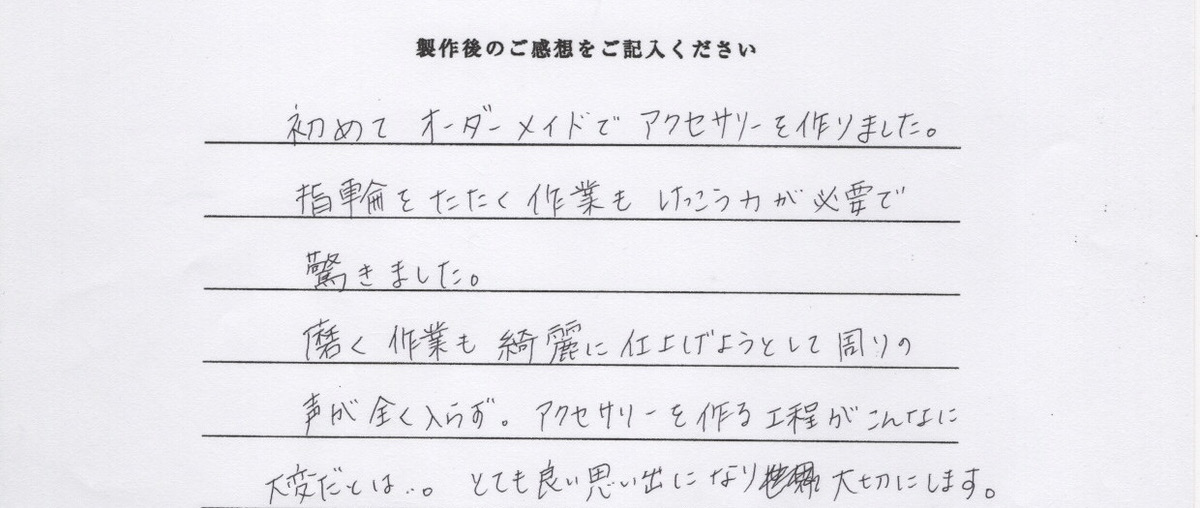 製作後のご感想をご記入ください
初めて オーダーメイドで アクセサリーを作りました。
指輪を たたく 作業も けっこう力が 必要で
驚きました。
磨く 作業も 綺麗に 仕上げようとして 周りの
声が 全く入らず。アクセサリーを 作る 工程が こんなに
大変だとは…。 とても良い思い出になり 大切にします。